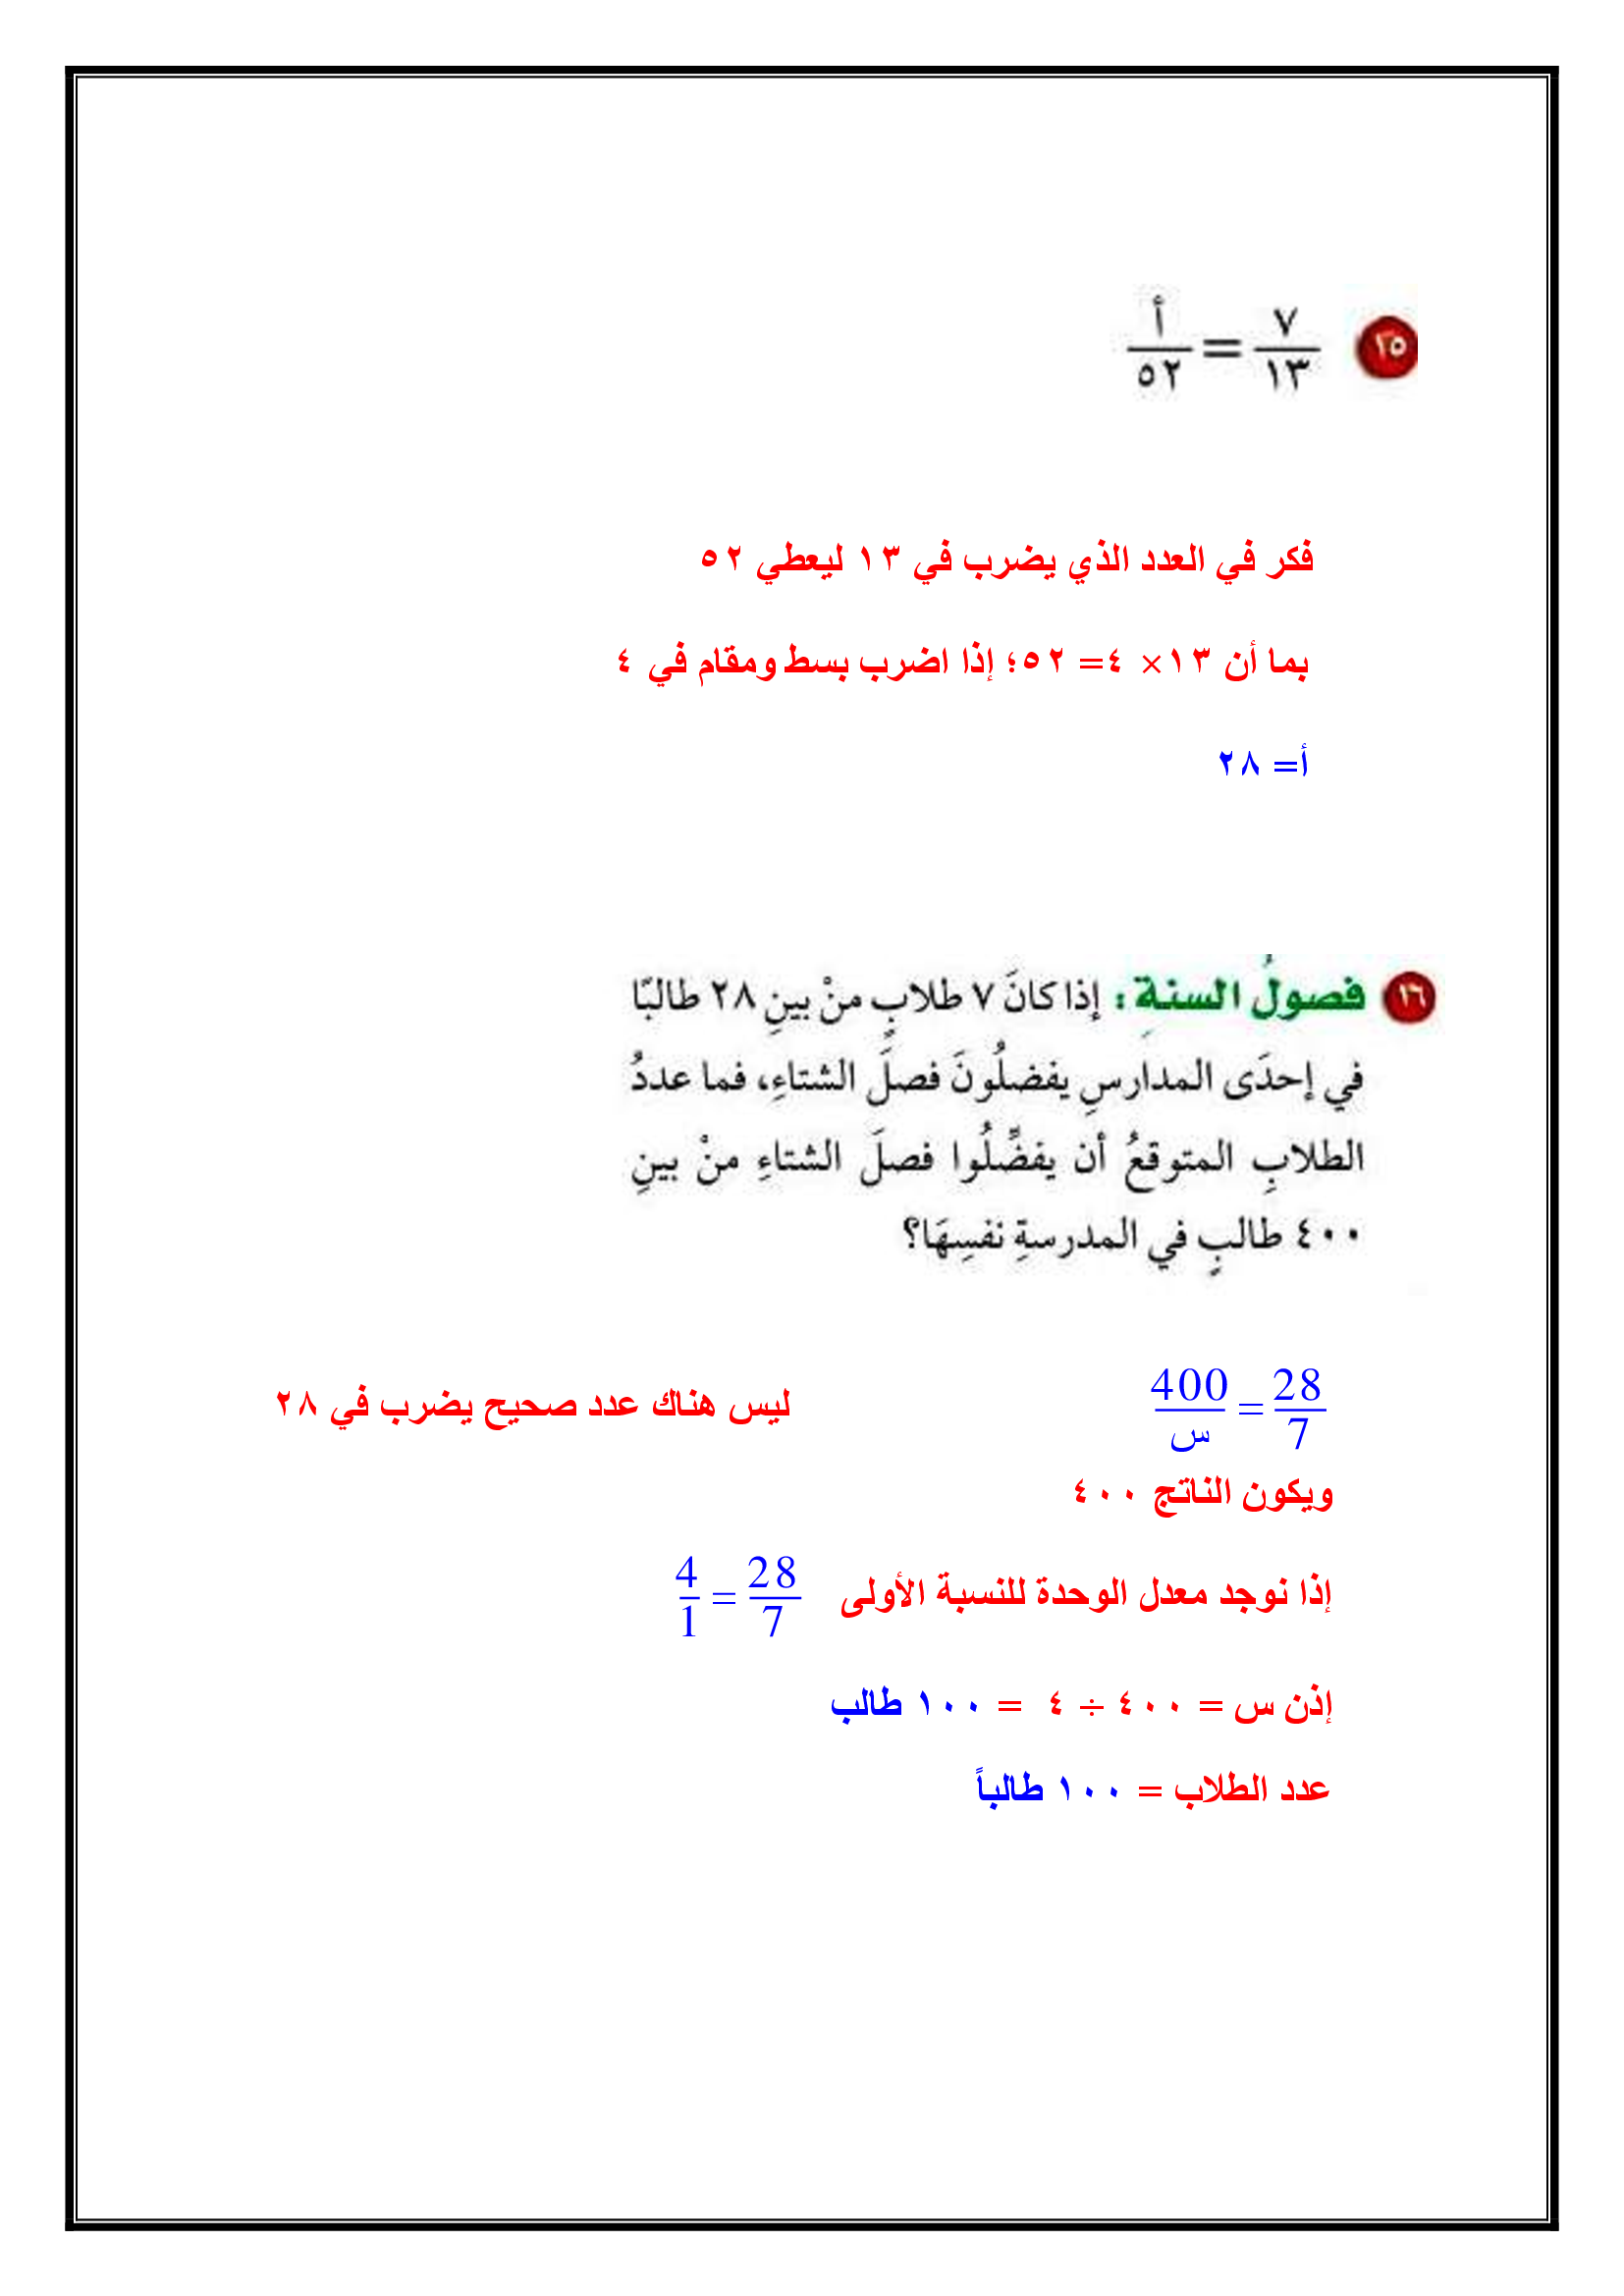 ١٥ ٧/١٣ = أ/٥٢
فكر في العدد الذي يضرب في ١٣ ليعطي ٥٢
بما أن ١٣× ٤= ٥٢؛ إذا اضرب بسط ومقام في ٤
أ= ٢٨
١٦ فصولُ السنةِ: إذا كانَ ٧ طلابٍ منْ بينِ ٢٨ طالبًا
في إحدَى المدارسِ يفضلُونَ فصلَ الشتاءِ، فما عددُ
الطلابِ المتوقعُ أن يفضِّلُوا فصلَ الشتاءِ منْ بينِ
٤٠٠ طالبٍ في المدرسةِ نفسِهَا؟
28/7 = 400/س ليس هناك عدد صحيح يضرب في ٢٨
ويكون الناتج ٤٠٠
إذا نوجد معدل الوحدة للنسبة الأولى 28/7 = 4/1
إذن س = ٤٠٠ ÷ ٤ = ١٠٠ طالب
عدد الطلاب = ١٠٠ طالباً